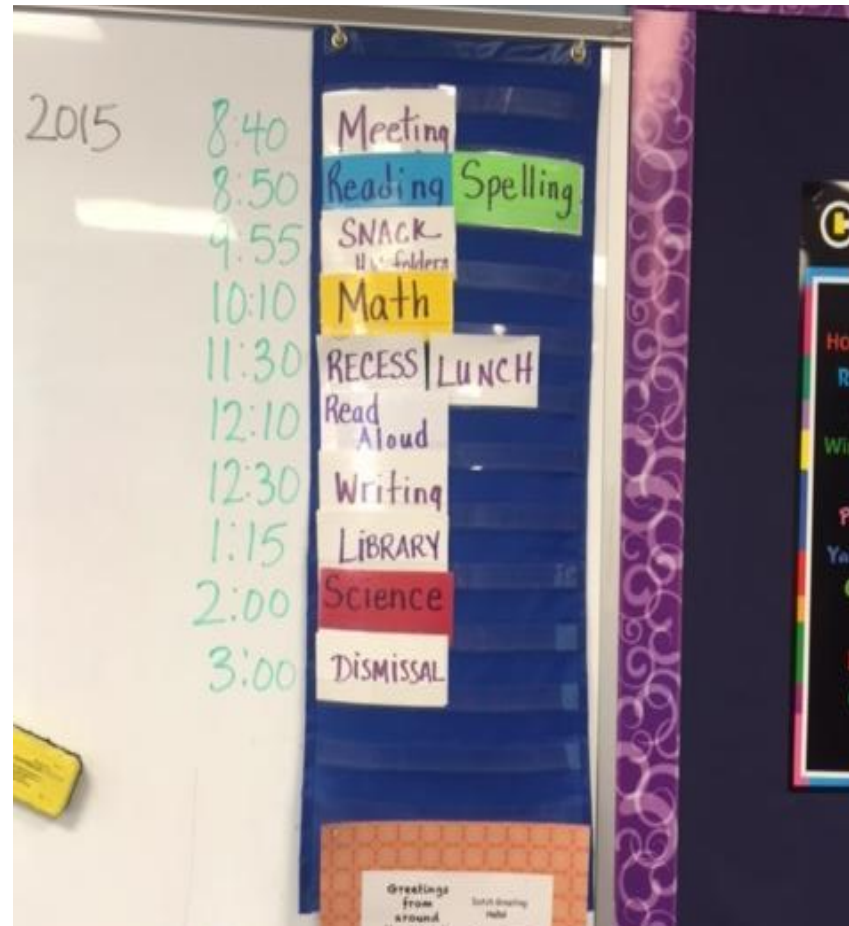 2015
8:40 Meeting
8:50 Reading Spelling
9:55 SNACK
folders
10:10 Math
11:30 RECESS LUNCH
12:10 Read
Aloud
12:30 Writing
1:15 LiBRARY
2:00 Science
3:00 DiSMiSSAL
Greetings
from
around
Hello!